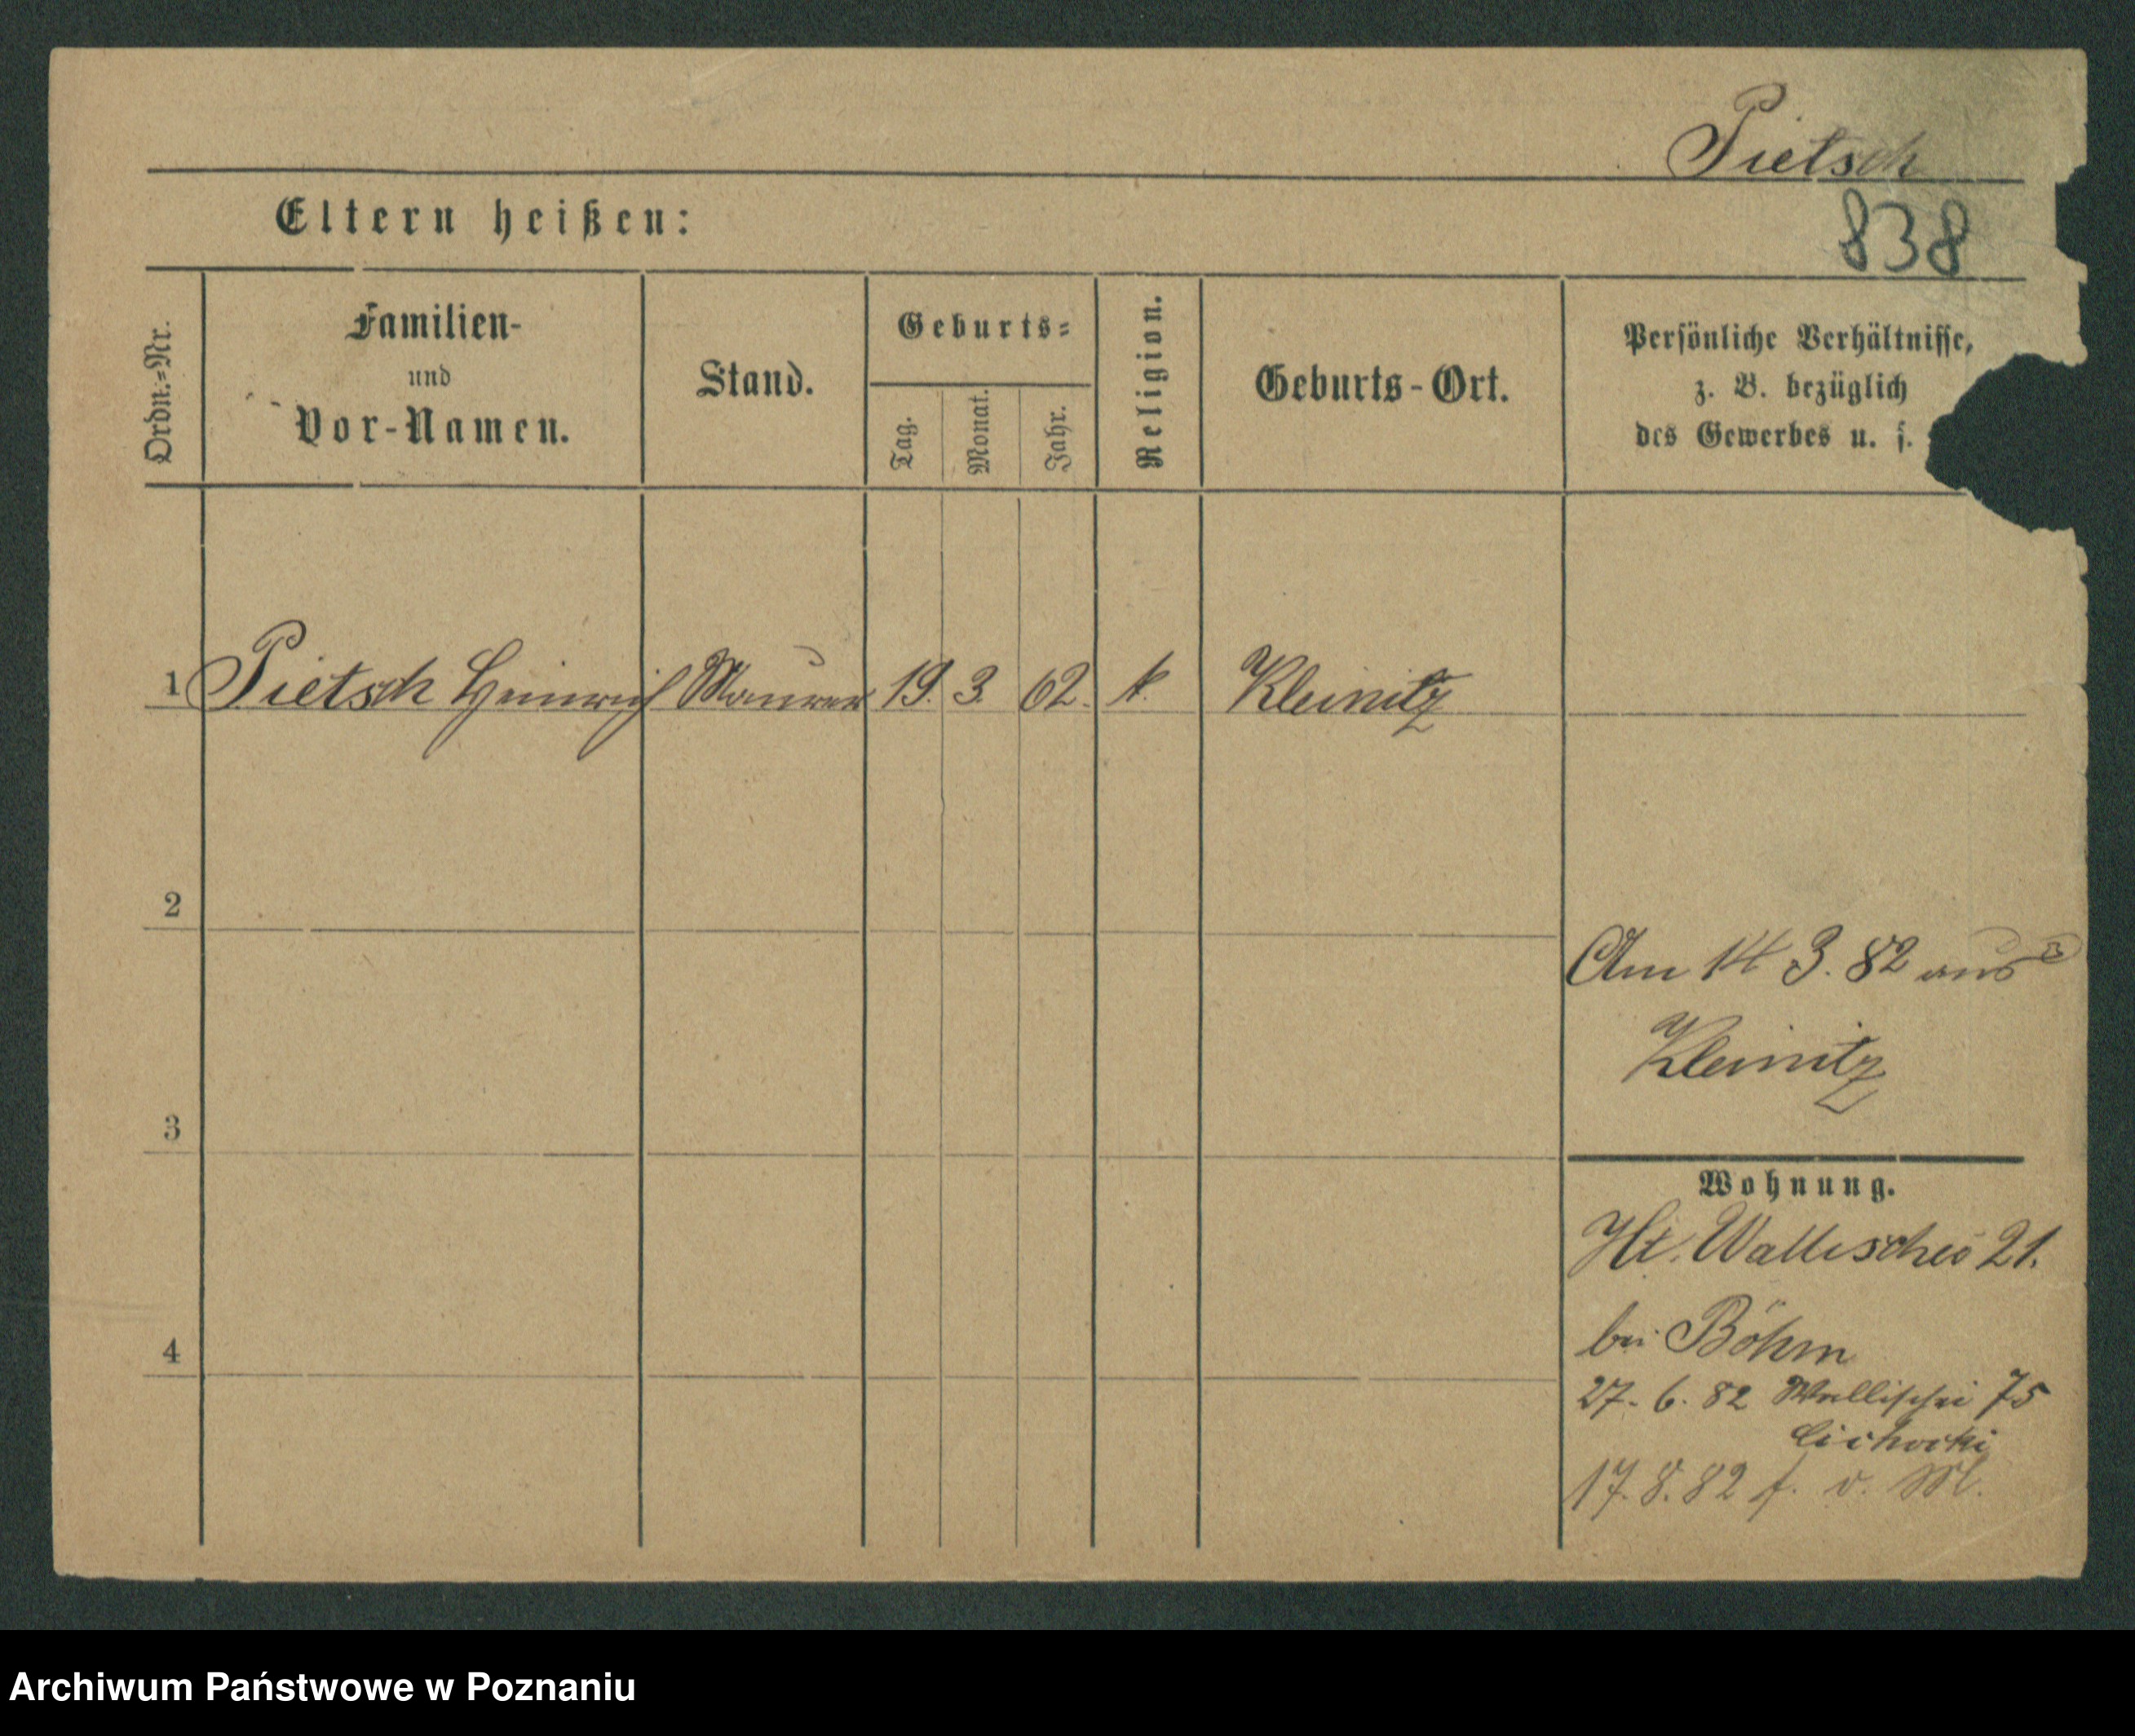 Pietsch
Eltern heißen:
838
Ordn.=Nr.
Familien-
und
Vor-Namen.
Stand.
Geburts=
Tag.
Monat.
Jahr.
Religion.
Geburts-Ort.
Persönliche Verhältnisse,
z. B. bezüglich
des Gewerbes u. s.
1 Pietsch Heinrich Maurer 19. 3. 62. k. Kleinitz
2
Am 14 3. 82 aus
Kleinitz
3
Wohnung.
Ht. Wallischei 21.
bei Böhm
4
27. 6. 82 Wallischei 75
Cichocki
17. 8. 82 f. v. M.
Archiwum Państwowe w Poznaniu